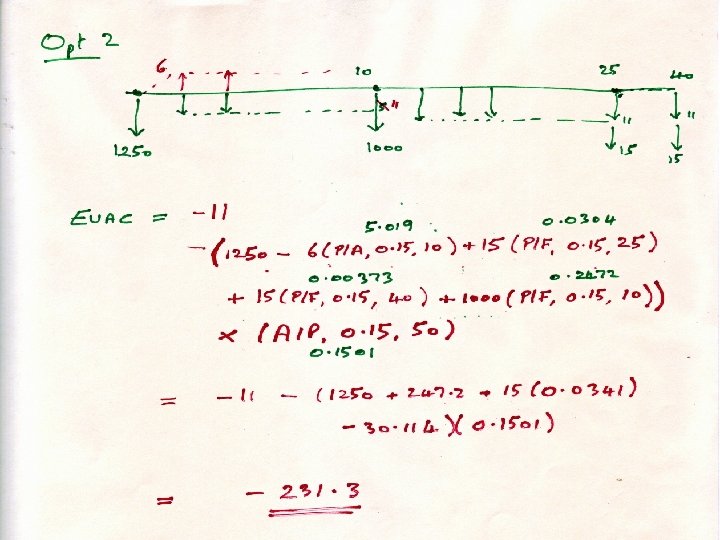 Opt 2
6 10 25 40
5 11 11 11
1250 1000 15 15
EUAC = -11
5.019 0.0304
-(1250 - 6(P/A, 0.15, 10) + 15(P/F, 0.15, 25)
0.00373 0.2472
+ 15(P/F, 0.15, 40) + 1000(P/F, 0.15, 10))
× (A/P, 0.15, 50)
0.1501
= -11 - (1250 + 247.2 + 15(0.0341)
- 30.114)(0.1501)
= - 231.3